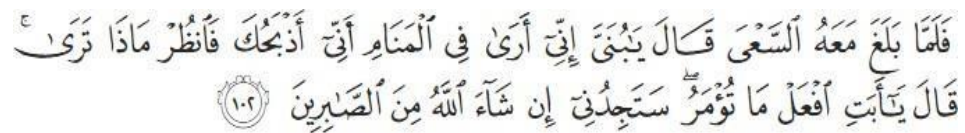 فَلَمَّا بَلَغَ مَعَهُ ٱلسَّعْىَ قَالَ يَٰبُنَىَّ إِنِّىٓ أَرَىٰ فِى ٱلْمَنَامِ أَنِّىٓ أَذْبَحُكَ فَٱنظُرْ مَاذَا تَرَىٰ ۚ
قَالَ يَٰٓأَبَتِ ٱفْعَلْ مَا تُؤْمَرُ ۖ سَتَجِدُنِىٓ إِن شَآءَ ٱللَّهُ مِنَ ٱلصَّٰبِرِينَ ١٠٢